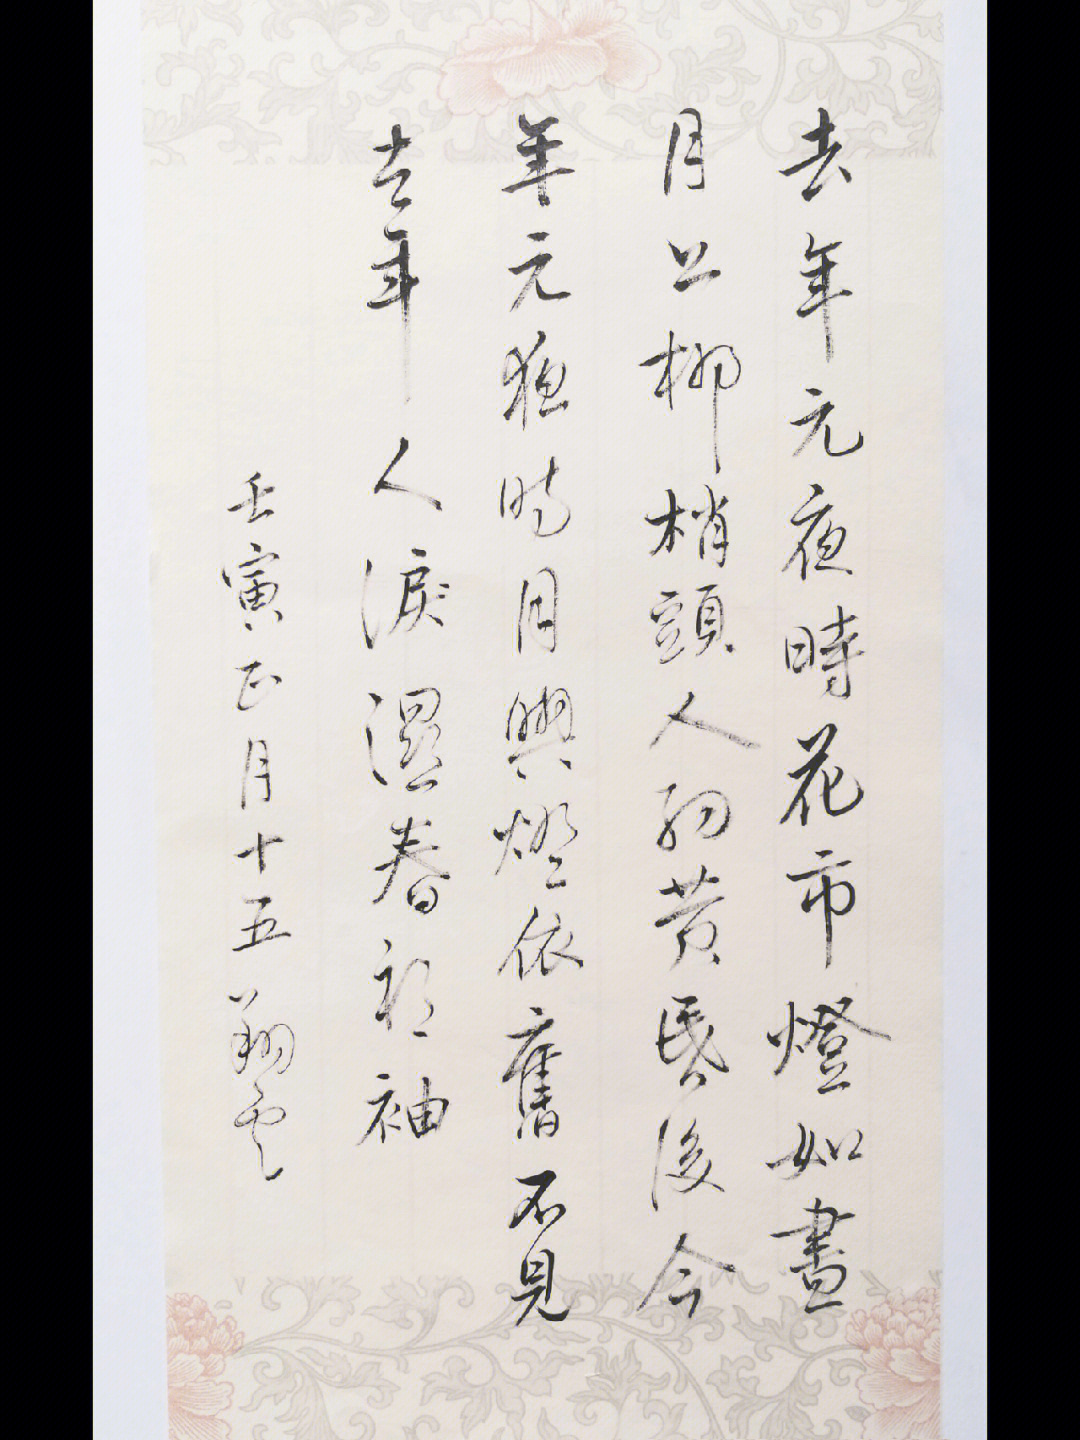 去年元夜時花市燈如晝
月上柳梢頭人約黄昏後今
年元夜時月與燈依舊不見
去年人淚濕春衫袖
壬寅正月十五翔雲